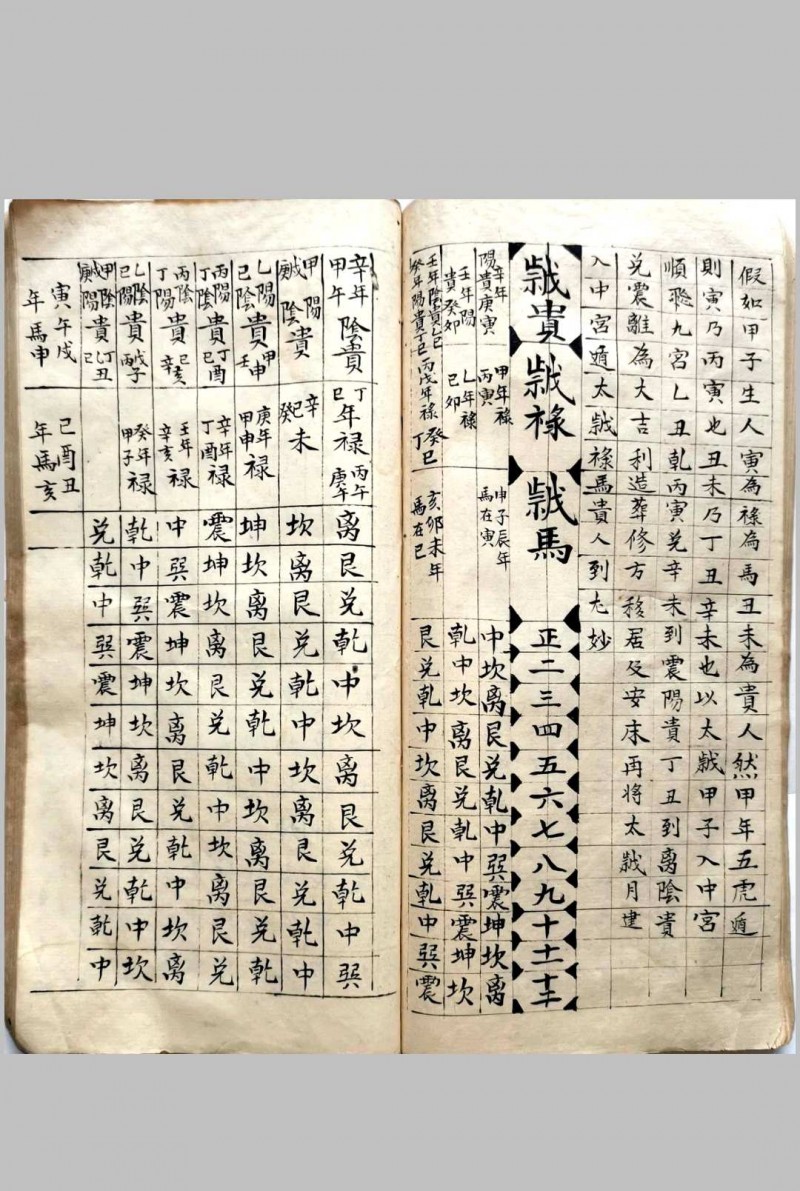 假如甲子生人寅為祿為馬丑未為貴人然甲年五虎遁
則寅乃丙寅也丑未乃丁丑辛未也以太歲甲子入中宮
順飛九宮乙丑乾丙寅兌辛未到震陽貴丁丑到離陰貴
兌震離為大吉利造葬修方移居及安床再將太歲月建
入中宮遁太歲祿馬貴人到尤妙
歲貴 歲祿 歲馬 正二三四五六七八九十十一十二
辛年陽貴庚寅 甲年祿丙寅 申子辰年馬在寅 中坎离艮兌乾中巽震坤坎离
壬年陽貴癸卯 乙年祿己卯 亥卯未年馬在巳 乾中坎离艮兌乾中巽震坤坎
壬年陰貴乙巳 癸年陽貴丁巳 丙戊年祿癸巳丁 艮兌乾中坎离艮兌乾中巽震
辛年甲午陰貴 丁己年祿丙午庚午 离艮兌乾中坎离艮兌乾中巽
甲陽歲陰貴 辛未癸巳 坎离艮兌乾中坎离艮兌乾中
乙陽己陰貴甲申壬 庚年祿甲申 坤坎离艮兌乾中坎离艮兌乾
丙陽丁陰貴丁酉己 辛年祿丁酉 震坤坎离艮兌乾中坎离艮兌
丙陰丁陽貴己亥辛 壬年祿辛亥 中巽震坤坎离艮兌乾中坎离
乙陰己陽貴戊子丙 癸年祿甲子 乾中巽震坤坎离艮兌乾中坎
甲陰歲陽貴丁丑乙己 兌乾中巽震坤坎离艮兌乾中
寅午戌年馬申 巳酉丑年馬亥